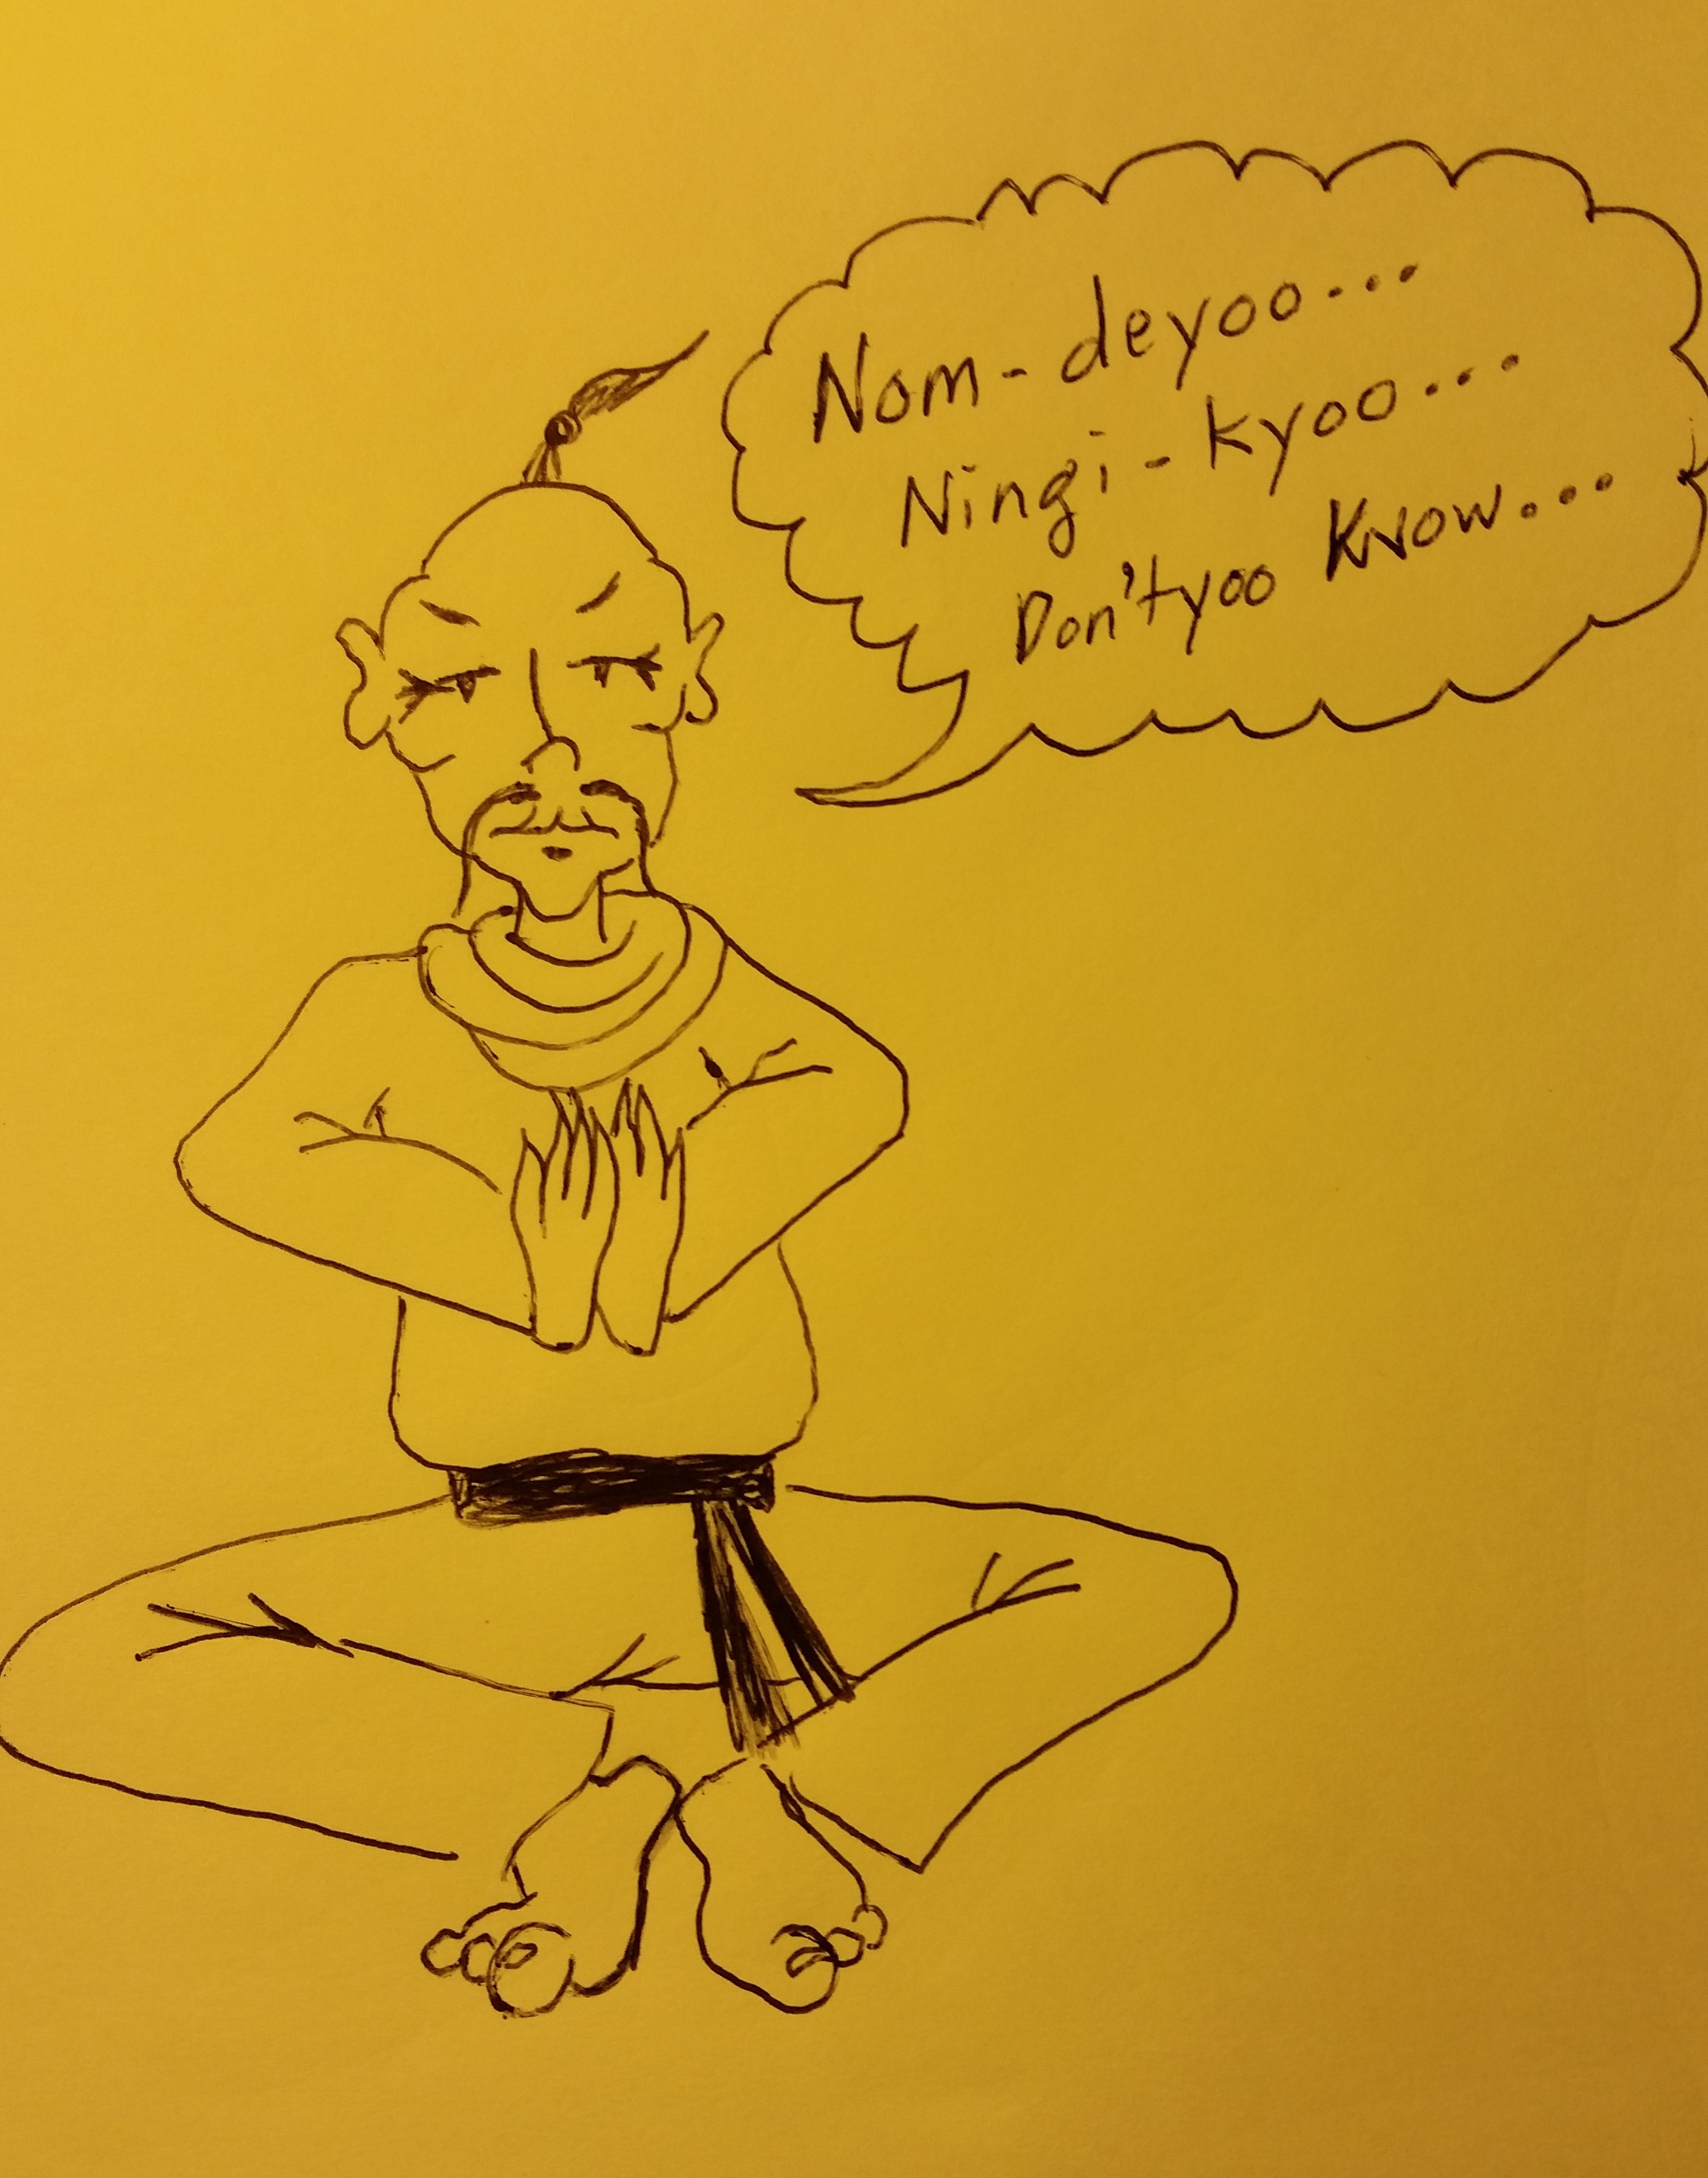 Nom-deyoo...
Ningi-kyoo...
Don'tyoo Know...